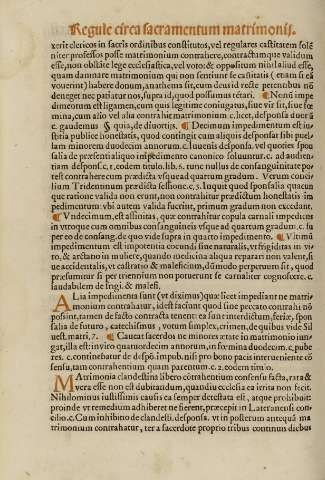 Regule circa sacramentum matrimonij.
xerit clericos in sacris ordinibus constitutos, vel regulares castitatem solẽ
niter professos posse matrimonium contrahere, contractumque validum
esse, non obstãte lege ecclesiastica, vel voto: & oppositum nihil aliud esse,
quam damnare matrimonium qui non sentiunt se castitatis (etiam si eã
vouerint) habere donum, anathema sit, cum deus id recte petentibus nõ
deneget nec patiatur nos, supra id, quod possumus tẽtari. ¶ Nonũ impe
dimentum est ligamen, cum quis legitime coniugatus, siue vir sit, siue fœ
mina, cum alio vel alia contrahit matrimonium c. licet, de sponsa duorũ
c. gaudemus § quia, de diuortijs. ¶ Decimum impedimentum est iu
stitia publicæ honestatis, quod contingit cum aliquis de sponsat sibi puel
lam minorem duodecim annorum. c. iuuenis de sponsa. vel quoties spon
salia de præsenti aliquo impedimento canonico soluuntur. c. ad audien
tiam de sponsa. c. 1. eodem titulo. lib. 6. tunc nullus de consanguinitate po
test contrahere cum prædicta vsque ad quartum gradum. Verum conci
lium Tridentinum prædicta sessione. c. 3. Iniquit quod sponsalia quacun
que ratione valida non erunt, non contrahatur prædictum honestatis im
pedimentum: vbi autem valida fuerint, primum gradum non excedant.
¶ Vndecimum, est affinitas, quæ contrahitur copula carnali impediens
in vtroque cum omnibus consanguineis vsque ad quartum gradum. c. su
per eo de consang. de quo vide supra in quarto impedimento. ¶ Vltimũ
impedimentum est impotentia coeundi siue naturalis, vt frigiditas in vi-
ro, & arctatio in muliere, quando medicina aliqua reparari non valent, si
ue accidentalis, vt castratio & maleficium, dũmodo perpetuum sit, quod
præsumitur si per triennium non potuerint se carnaliter cognoscere. c.
laudabilem de frigi. & malefi.
Alia impedimenta sunt (vt diximus) quæ licet impediant ne matri-
monium contrahatur, id est faciant quod sine peccato contrahi nõ
possint, tamen de facto contracta tenent: ea sunt interdictum, feriæ, spon
salia de futuro, catechismus, votum simplex, crimen, de quibus vide Sil
uest. matri. 7. ¶ Caueat sacerdos ne minores ætate in matrimonio iun-
gat, illa est: in viro quatuordecim annorum, in fœmina duodecim. c. pube
res. c. continebatur de despõ. impub. nisi pro bono pacis interueniente cõ
sensu, tam contrahentium quam parentum. c. 2. eodem titulo.
Matrimonia clandestina libero cõtrahentium consensu facta, rata &
vera esse non est dubitandum, quandiu ecclesia ea irrita non fecit.
Nihilominus iustissimis causis ea semper detestata est, atque prohibuit:
proinde vt remedium adhiberet ne fierent, præcepit in Lateranensi con-
cilio. c. Cum inhibitio de clandesti. desponsa. vt in posterum antequã ma
trimonium contrahatur, ter a sacerdote proprio tribus continuis diebus